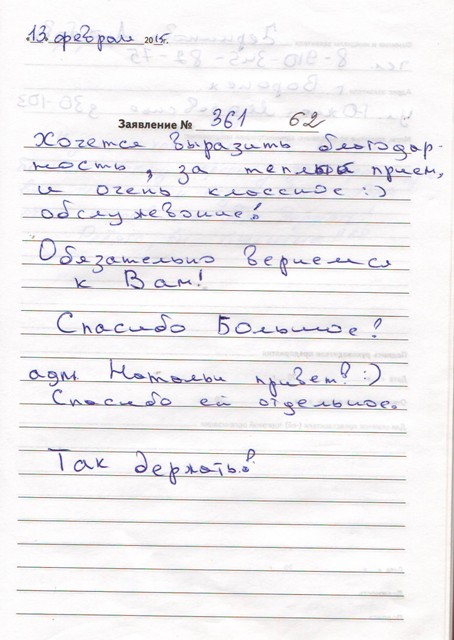 13 февраля 2015г.
Заявление № 361 62
Хочется выразить благодар-
ность, за теплый прием,
и очень классное :)
обслуживание!
Обязательно вернемся
к Вам!
Спасибо Большое!
адм. Натальи привет! :)
Спасибо ей отдельное.
Так держать!